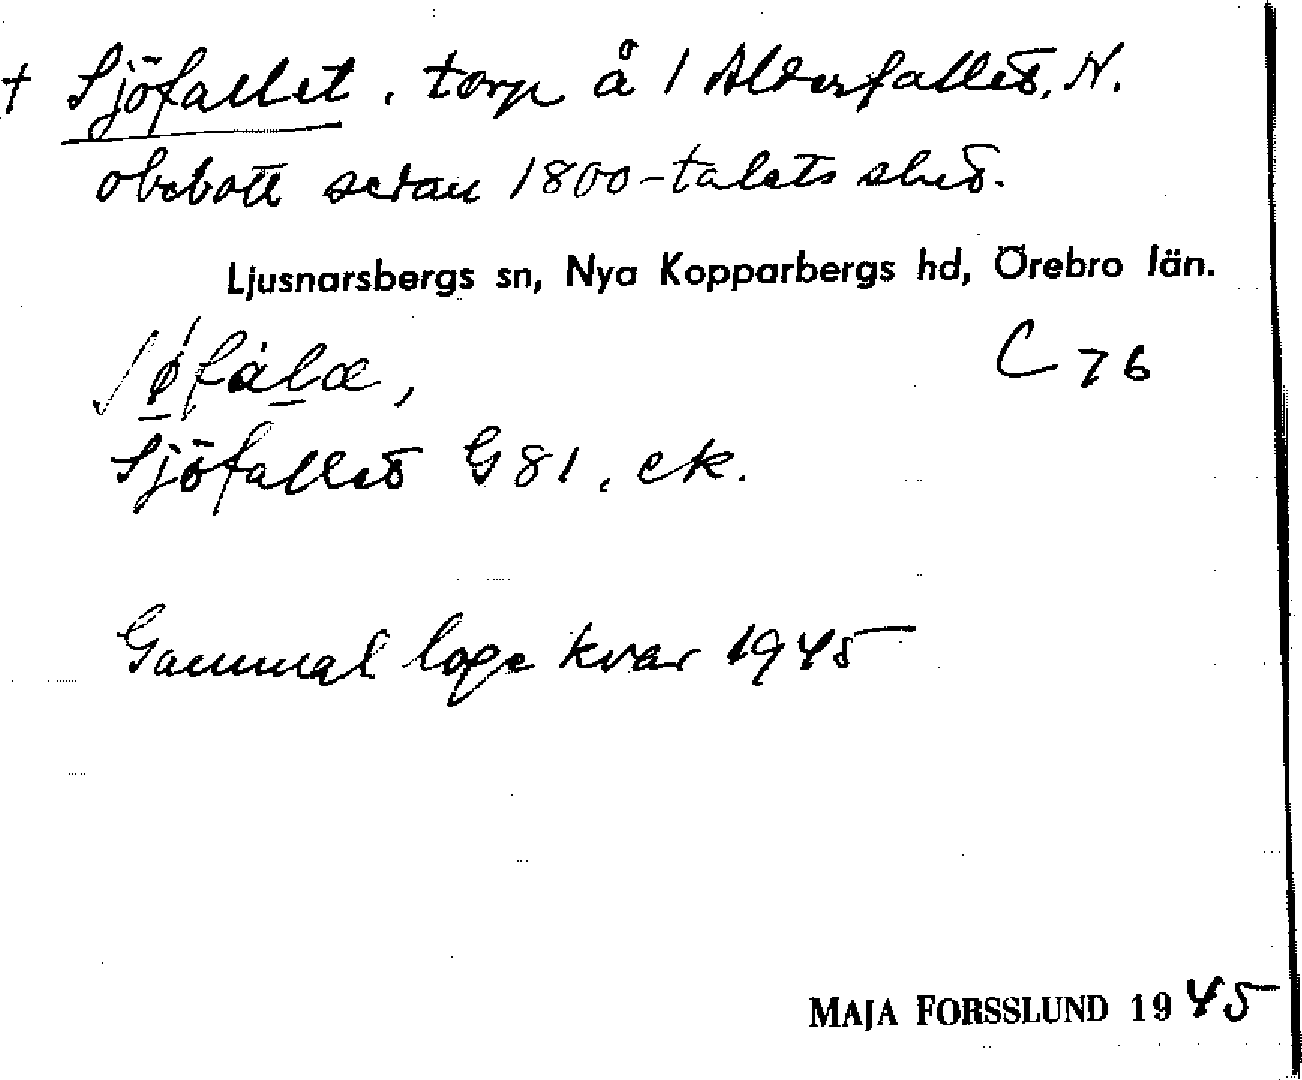 † Sjöfallet, torp å 1 Alterfallet, N.
obebott sedan 1800-talets slut.
Ljusnarsbergs sn, Nya Kopparbergs hd, Örebro län.
C 76
Sjöfallet G 81, ek.
Gammal loge kvar 1945
MAJA FORSSLUND 1945